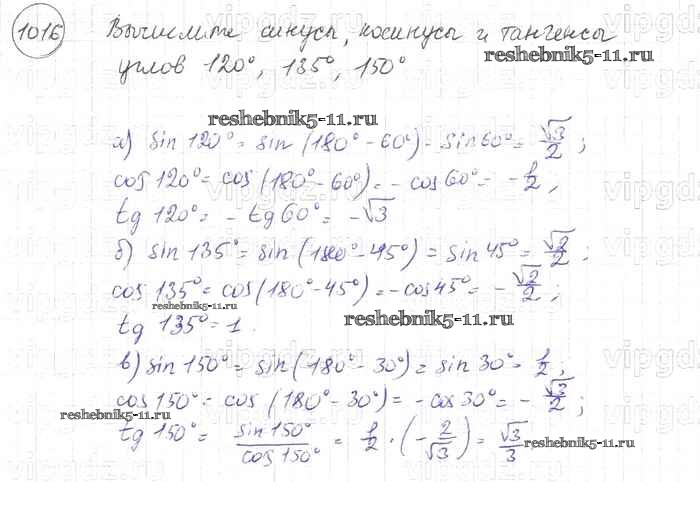 1016 Вычислите синусы, косинусы и тангенсы
reshebnik5-11.ru
углов 120°, 135°, 150°
reshebnik5-11.ru
а) sin 120° = sin (180° - 60°) = sin 60° = √3/2 ;
cos 120° = cos (180° - 60°) = - cos 60° = - 1/2 ,
tg 120° = - tg 60° = - √3
б) sin 135° = sin (180° - 45°) = sin 45° = √2/2 ;
cos 135° = cos (180° - 45°) = - cos 45° = - √2/2 ;
reshebnik5-11.ru
tg 135° = 1 .
reshebnik5-11.ru
в) sin 150° = sin (180° - 30°) = sin 30° = 1/2 ;
cos 150° = cos (180° - 30°) = - cos 30° = - √3/2 ;
reshebnik5-11.ru
tg 150° = sin 150°/cos 150° = 1/2 · (- 2/√3) = √3/3
reshebnik5-11.ru